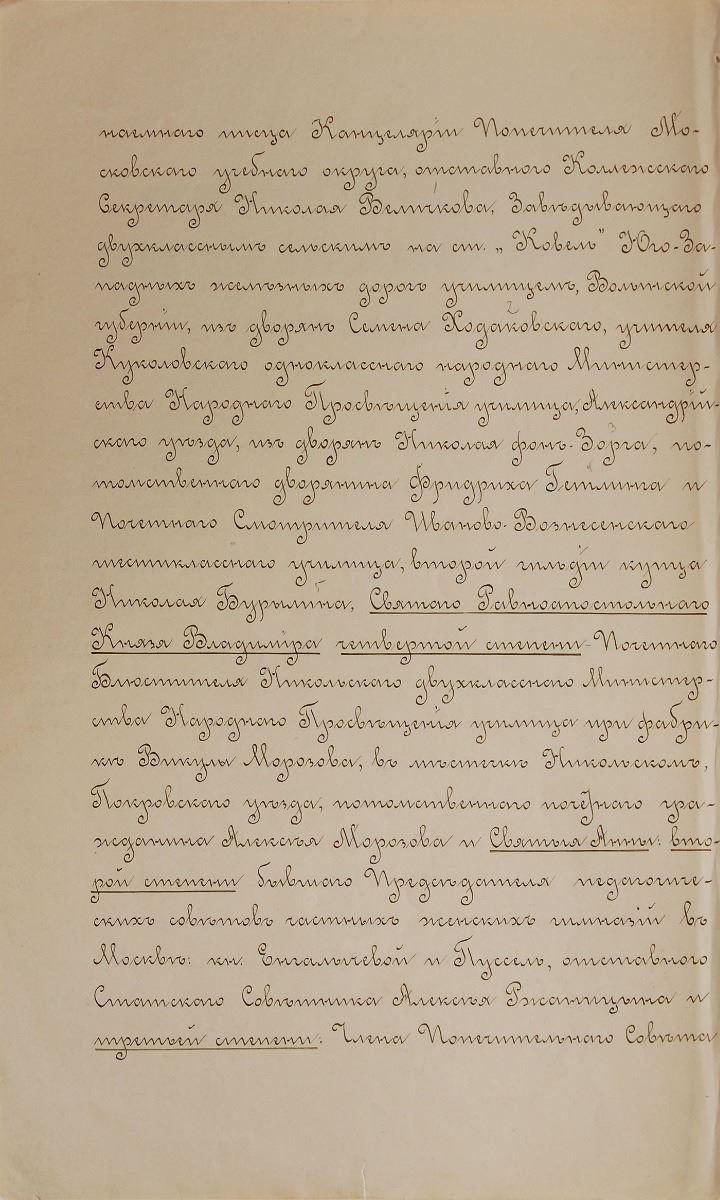 наемнаго писца Канцеляріи Попечителя Мо-
сковскаго учебнаго округа, отставного Коллежскаго
Секретаря Николая Величкова, Завѣдывающаго
двухкласснымъ сельскимъ на ст. „Ковель" Юго-За-
падныхъ желѣзныхъ дорогъ училищемъ, Волынской
губерніи, изъ дворянъ Семена Ходаковскаго, учителя
Куколовскаго одноклассного народнаго Министер-
ства Народнаго Просвѣщенія училища, Александрій-
скаго уѣзда, изъ дворянъ Николая фонъ-Зорга, по-
томственнаго дворянина Фридриха Гетлинга и
Почетнаго Смотрителя Иваново-Вознесенскаго
шестикласснаго училища, второй гильдіи купца
Николая Бурылина, Святаго Равноапостольнаго
Князя Владиміра четвертой степени - Почетнаго
Блюстителя Никольскаго двухкласснаго Министер-
ства Народнаго Просвѣщенія училища при фабри-
кѣ Викулы Морозова, въ мѣстечкѣ Никольскомъ,
Покровскаго уѣзда, потомственнаго почетнаго гра-
жданина Алексѣя Морозова и Святыя Анны: вто-
рой степени бывшаго Предсѣдателя педагогиче-
скихъ совѣтовъ частныхъ женскихъ гимназій въ
Москвѣ: кн. Енгалычевой и Пуссель, отставного
Статскаго Совѣтника Алексѣя Ржаницына и
третьей степени: Члена Попечительнаго Совѣта